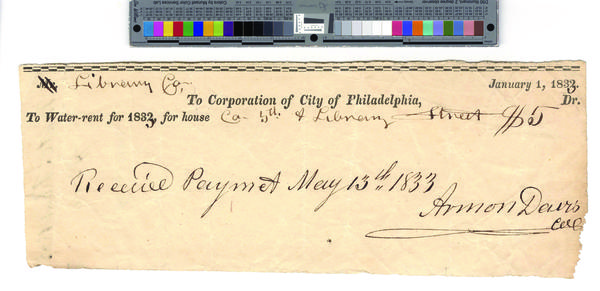 M Library Co. January 1, 1833.
To Corporation of City of Philadelphia, Dr.
To Water-rent for 1833, for house Co. 5th & Library Street $5
Received Paymet May 13th 1833
Armon Davis
Coll